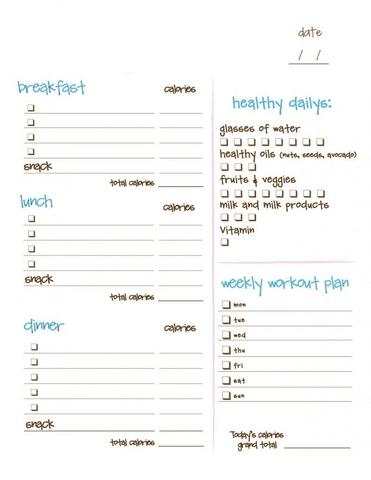 date
/ /
breakfast calories
snack
total calories
lunch calories
snack
total calories
dinner calories
snack
total calories
healthy dailys:
glasses of water
healthy oils (nuts, seeds, avocado)
fruits & veggies
milk and milk products
Vitamin
weekly workout plan
mon
tue
wed
thu
fri
sat
sun
Today's calories
grand total